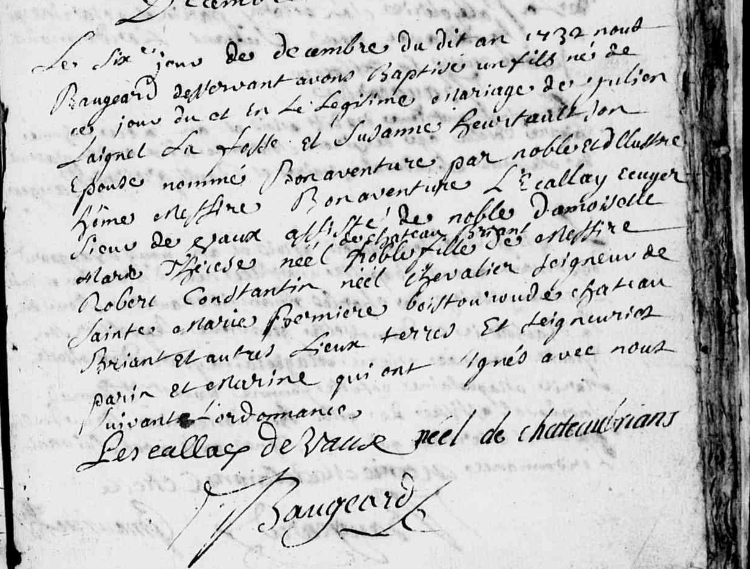 Decembre
Le Six.e jour de decembre du dit an 1732 nous
Baugeard desservant avons Baptisé un fils né de
ce jour du et en Le Legitime Mariage de Julien
Laignel La fosse et Susanne heurtault son
Epouse nommé Bonaventure par noble et illustre
hôme Messire Bonaventure L'Ecallay Ecuyer
sieur de vaux assisté de noble damoiselle
Marie Therese néel de chateau Briant noble fille de Messire
Robert Constantin néel chevalier seigneur de
Sainte Marie chateau
Briant et autres Lieux terres et seigneuries
parin et Marine qui ont signés avec nous
suivant L'ordonnance
Lescallay de Vaux neel de chateaubrians
Baugeard